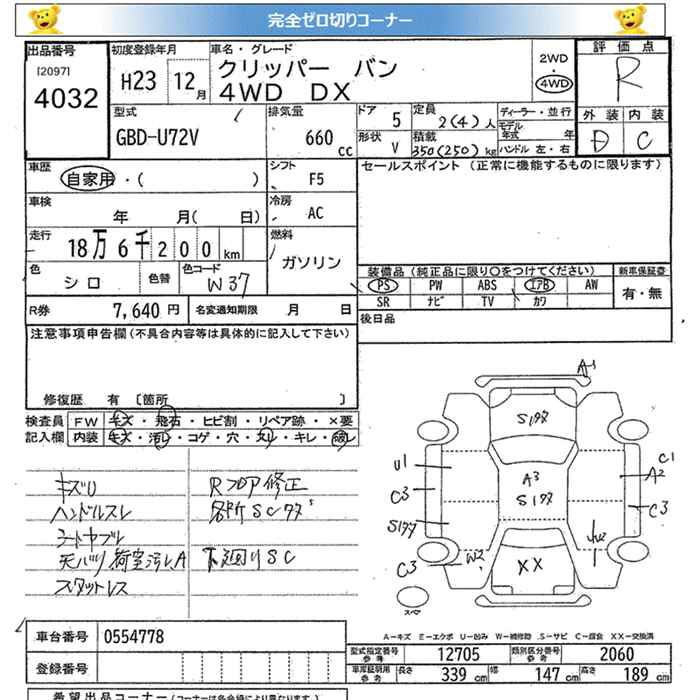 完全ゼロ切りコーナー
出品番号
[2097]
4032
初度登録年月
H23 12月
車名・グレード
クリッパー バン
4WD DX
2WD
・
4WD
評価点
R
外装 内装
D C
型式
GBD-U72V
排気量
660 cc
ドア 5
形状 V
定員 2(4)人
積載 350(250)kg
ディーラー・並行
モデル年式 年
ハンドル 左・右
車歴
自家用・( )
シフト
F5
セールスポイント (正常に機能するものに限ります)
車検
年 月( 日)
冷房
AC
走行
18万6千200km
燃料
ガソリン
色
シロ
色替
色コード
W37
装備品(純正品に限り○をつけてください)
新車保証書
PS PW ABS エアB AW
SR ナビ TV カワ
有・無
R券 7,640円
名変通知期限 月 日
後日品
注意事項申告欄(不具合内容等は具体的に記入して下さい)
修復歴 有 〔箇所 〕
検査員記入欄
FW キズ・飛石・ヒビ割・リペア跡・×要
内装 キズ・汚レ・コゲ・穴・スレ・キレ・破レ
キズU
ハンドルスレ
シートヤブレ
天バリ荷室汚レA
スタットレス
Rフロア修正
各所SCクサ
下廻りSC
A1
S1クサ
U1
C3
S1クサ
C3
A3
S1クサ
C1
A2
C3
W2
XX
スペア
A－キズ E－エクボ U－凹み W－補修跡 S－サビ C－腐食 XX－交換済
車台番号 0554778
登録番号
型式指定番号 参考 12705
類別区分番号 参考 2060
車庫証明用 参考 長さ 339 cm 幅 147 cm 高さ 189 cm
希望出品コーナー(コーナーは各会場により異なります)